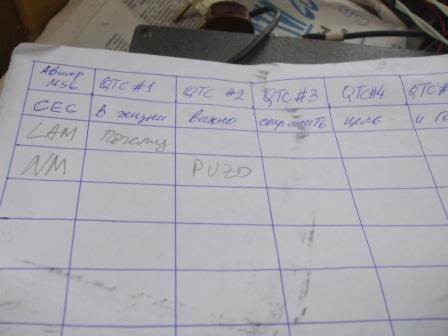 Автор MSG QTC #1 QTC #2 QTC #3 QTC #4 QTC #
CEC в жизни важно сохранить цель и
LAM почему
NM PUZO